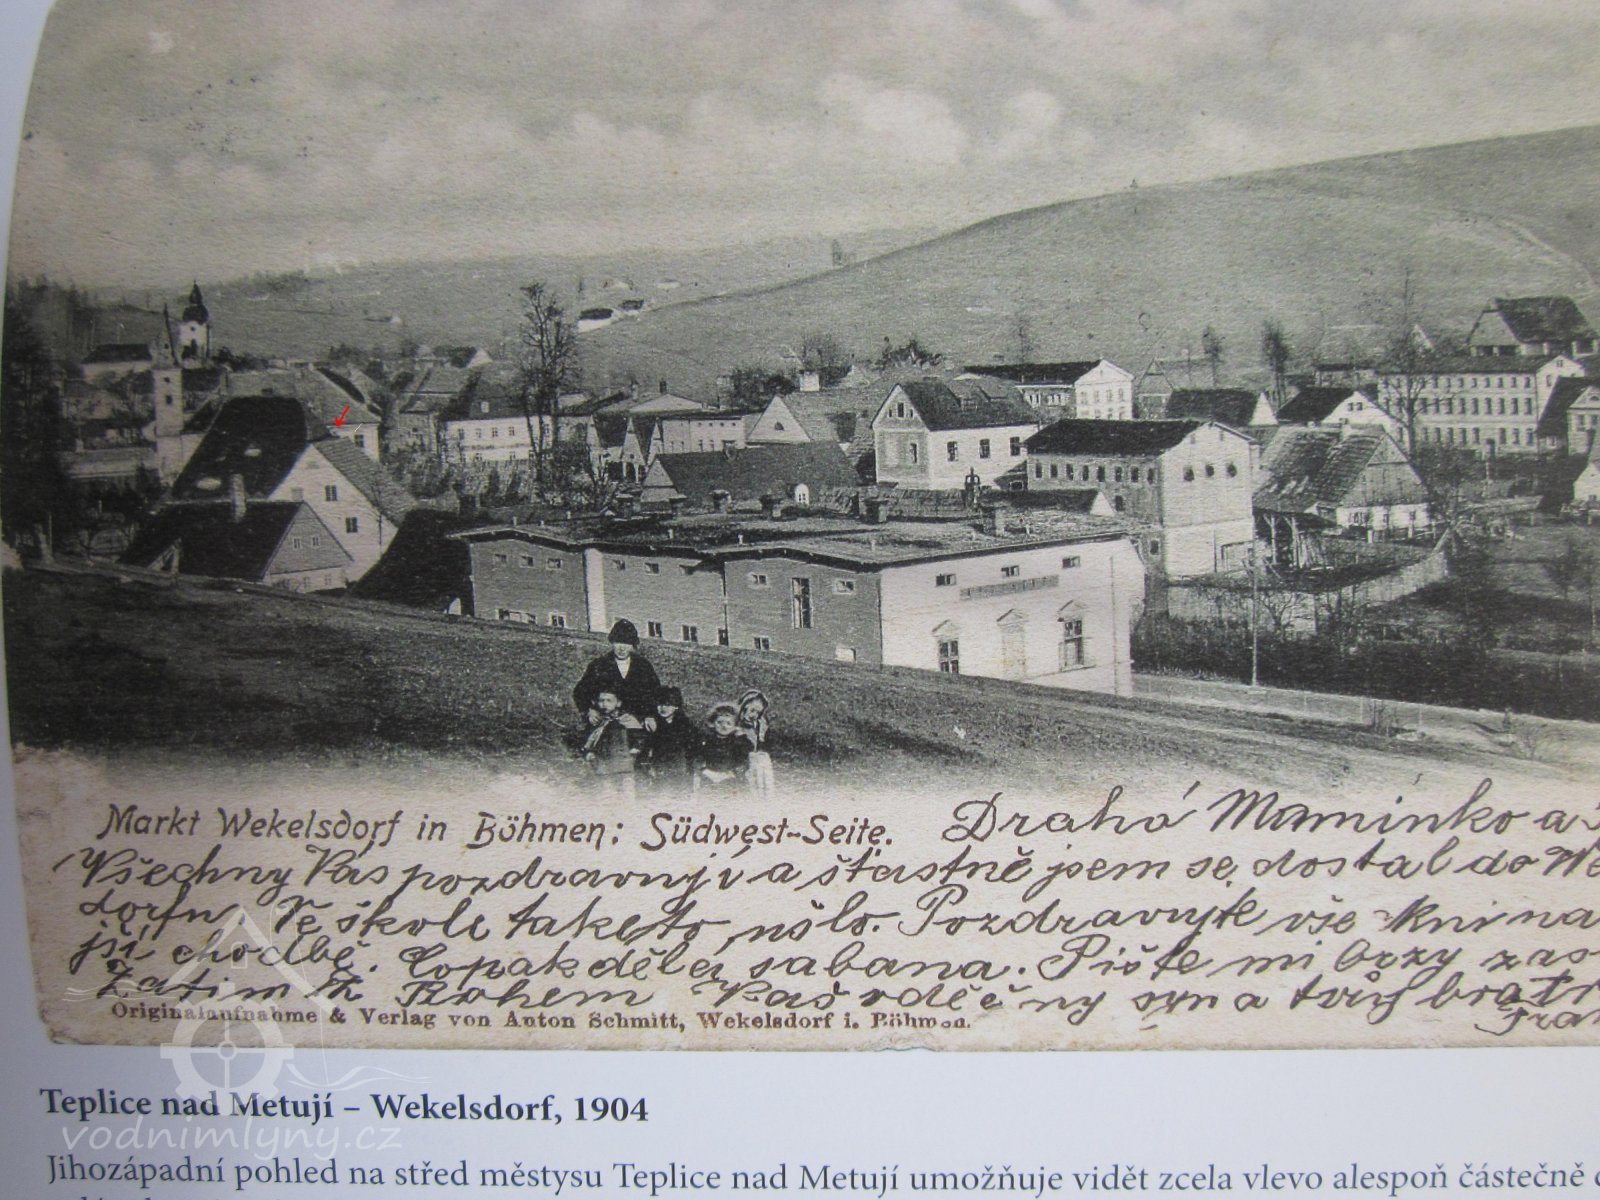 Markt Wekelsdorf in Böhmen: Südwest-Seite. Drahá Maminko a
Všechny Vás pozdravuji a štastně jsem se dostal do We
dorfu. Ve škole take to ušlo. Pozdravujte vše
jší chodbě. Copak děle sabana. Pište mi brzy zas
Zatim Bohem Váš vděčný syn a tvůj bratr
Originalaufnahme & Verlag von Anton Schmitt, Wekelsdorf i. Böhmen.
Teplice nad Metují – Wekelsdorf, 1904
vodnimlyny.cz
Jihozápadní pohled na střed městysu Teplice nad Metují umožňuje vidět zcela vlevo alespoň částečně